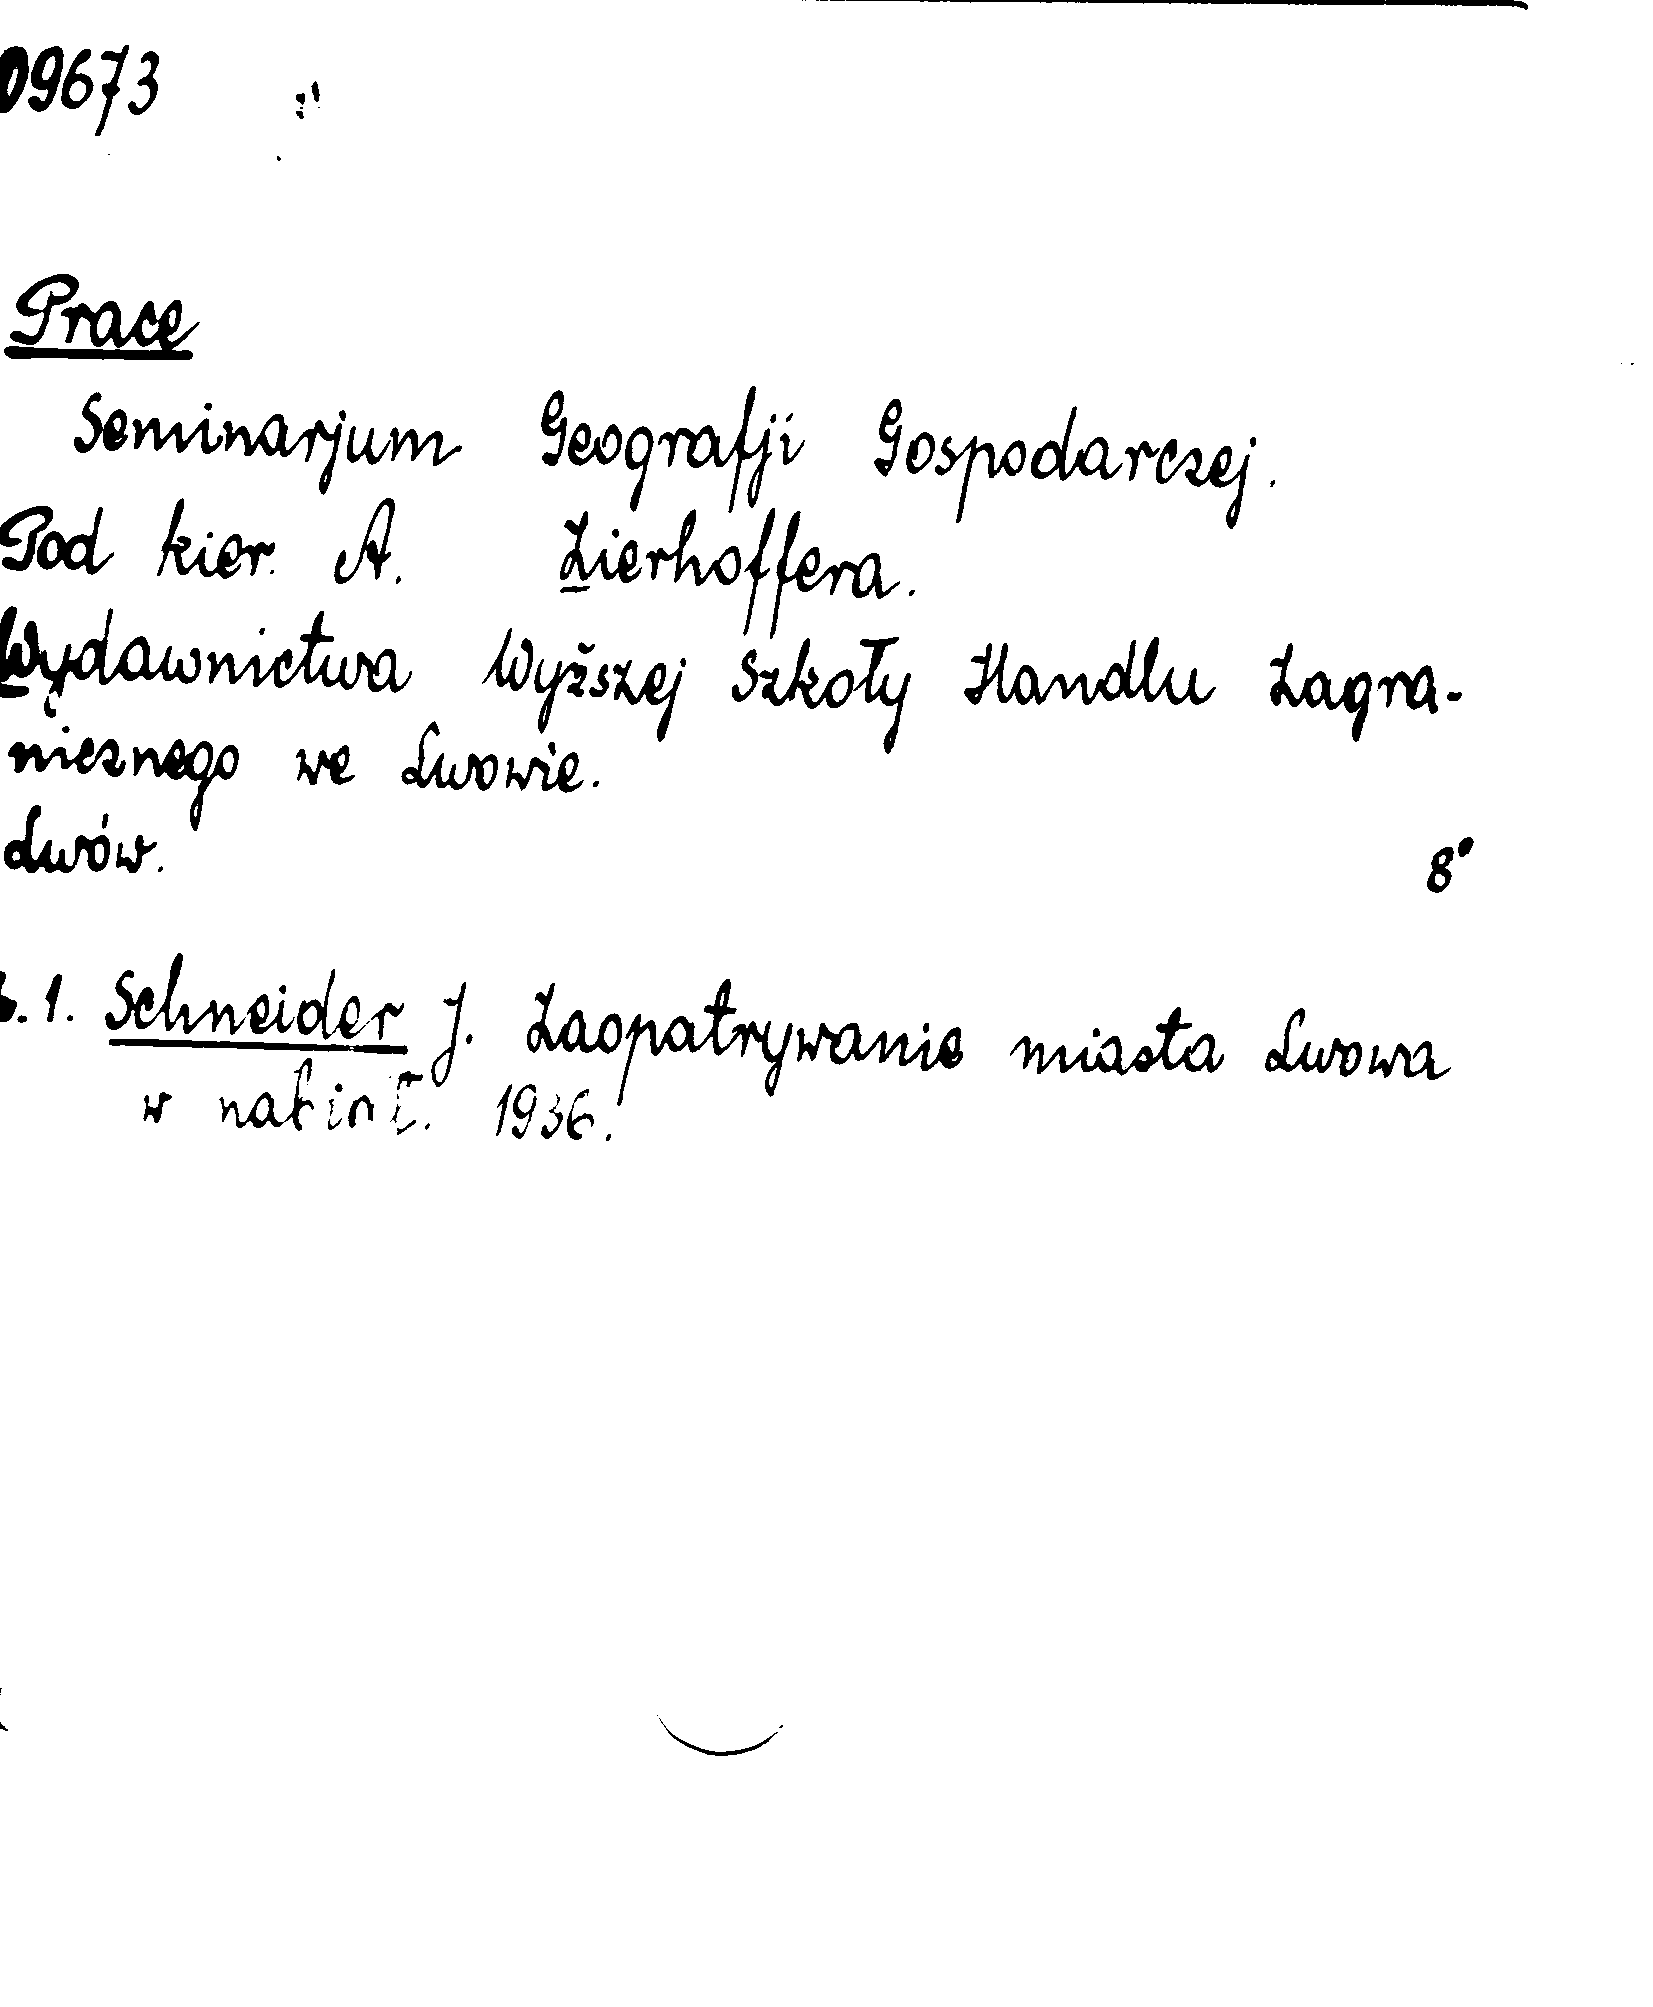 09673
Prace
Seminarjum Geografji Gospodarczej.
Pod kier. A. Zierhoffera.
Wydawnictwa Wyższej Szkoły Handlu Zagra-
nicznego we Lwowie.
Lwów. 8°
1. Schneider J. Zaopatrywanie miasta Lwowa
w 1936.